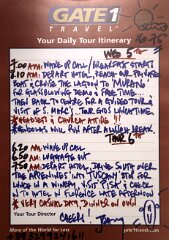 GATE 1
TRAVEL
Your Daily Tour Itinerary
WED 5TH
7.00 AM - WAKE UP CALL / BREAKFAST START
8.10 AM - DEPART HOTEL, REACH OUR PRIVATE
BOAT & CRUISE THE LAGOON TO MURANO
FOR A GLASSBLOWING DEMO & FREE TIME
THEN BACK TO CENTRE FOR A GUIDED TOUR &
VISIT OF S. MARC'S. TOUR ENDS LUNCHTIME.
RENDEZVOUS WILL RUN AFTER
THUR 6TH
6.20 AM - WAKE UP CALL
6.50 AM - LUGGAGE OUT
7.50 AM - DEPART HOTEL, DRIVE SOUTH OVER
THE APENNINES INTO TUSCANY STOP FOR
LUNCH IN A WINERY, VISIT PISA & CHECK
IN TO HOTEL IN FLORENCE LATE AFTERNOON
* VERY CASUAL DAY, DINNER ON OWN
Your Tour Director
CHEERS!
More of the World for Less
gate1travel.com